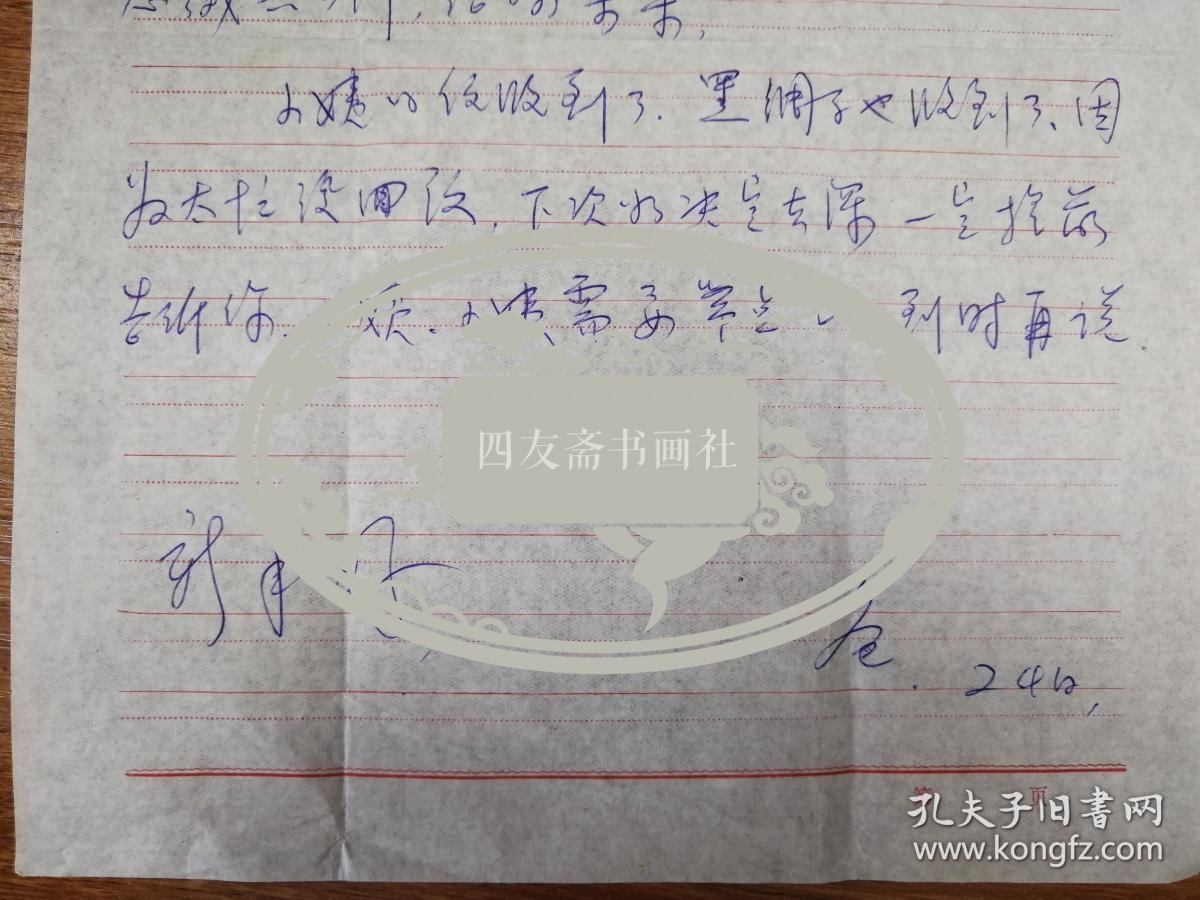 小姨的信收到了.黑绸子也收到了、因
为太忙没回信,下次如决定去深一定提前
告诉你. 需要 到时再说.
四友斋书画社
新年好
爸. 24日,
第 页
孔夫子旧书网
www.kongfz.com